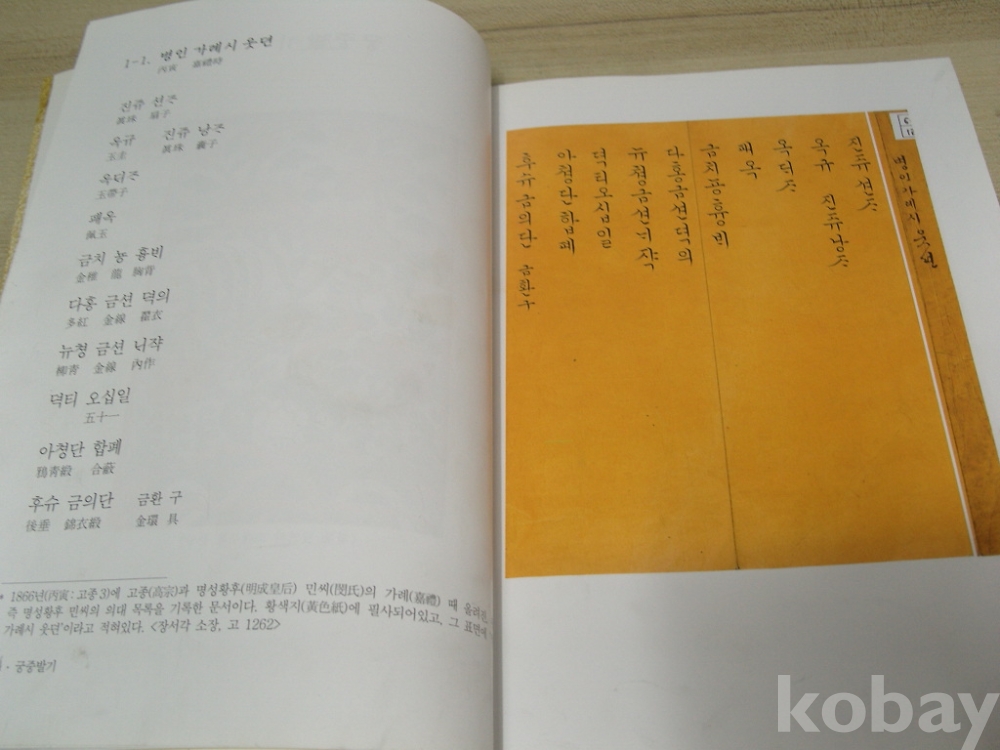 1-1. 병인 가례시 웃뎐
丙寅 嘉禮時
진쥬 션ᄌᆞ
眞珠 扇子
옥규 진쥬 낭ᄌᆞ
玉圭 眞珠 囊子
옥ᄃᆡᄌᆞ
玉帶子
패옥
佩玉
금치 농 흉ᄇᆡ
金椎 龍 胸背
다홍 금션 덕의
多紅 金線 翟衣
뉴쳥 금션 ᄂᆡ쟉
柳靑 金線 內作
덕티 오십일
五十一
아쳥단 합폐
鴉靑緞 合蔽
후슈 금의단 금환 구
後垂 錦衣緞 金環 具
* 1866년(丙寅:고종3)에 고종(高宗)과 명성황후(明成皇后) 민씨(閔氏)의 가례(嘉禮) 때 올려진,
즉 명성황후 민씨의 의대 목록을 기록한 문서이다. 황색지(黃色紙)에 필사되어있고, 그 표면에
가례시 웃뎐'이라고 적혀있다. <장서각 소장, 고 1262>
· 궁중발기
병인가례시 웃뎐
진쥬션ᄌᆞ
옥규 진쥬낭ᄌᆞ
옥ᄃᆡᄌᆞ
패옥
금치농흉ᄇᆡ
다홍금션덕의
뉴쳥금션ᄂᆡ쟉
덕티오십일
아쳥단합폐
후슈금의단 금환구
kobay